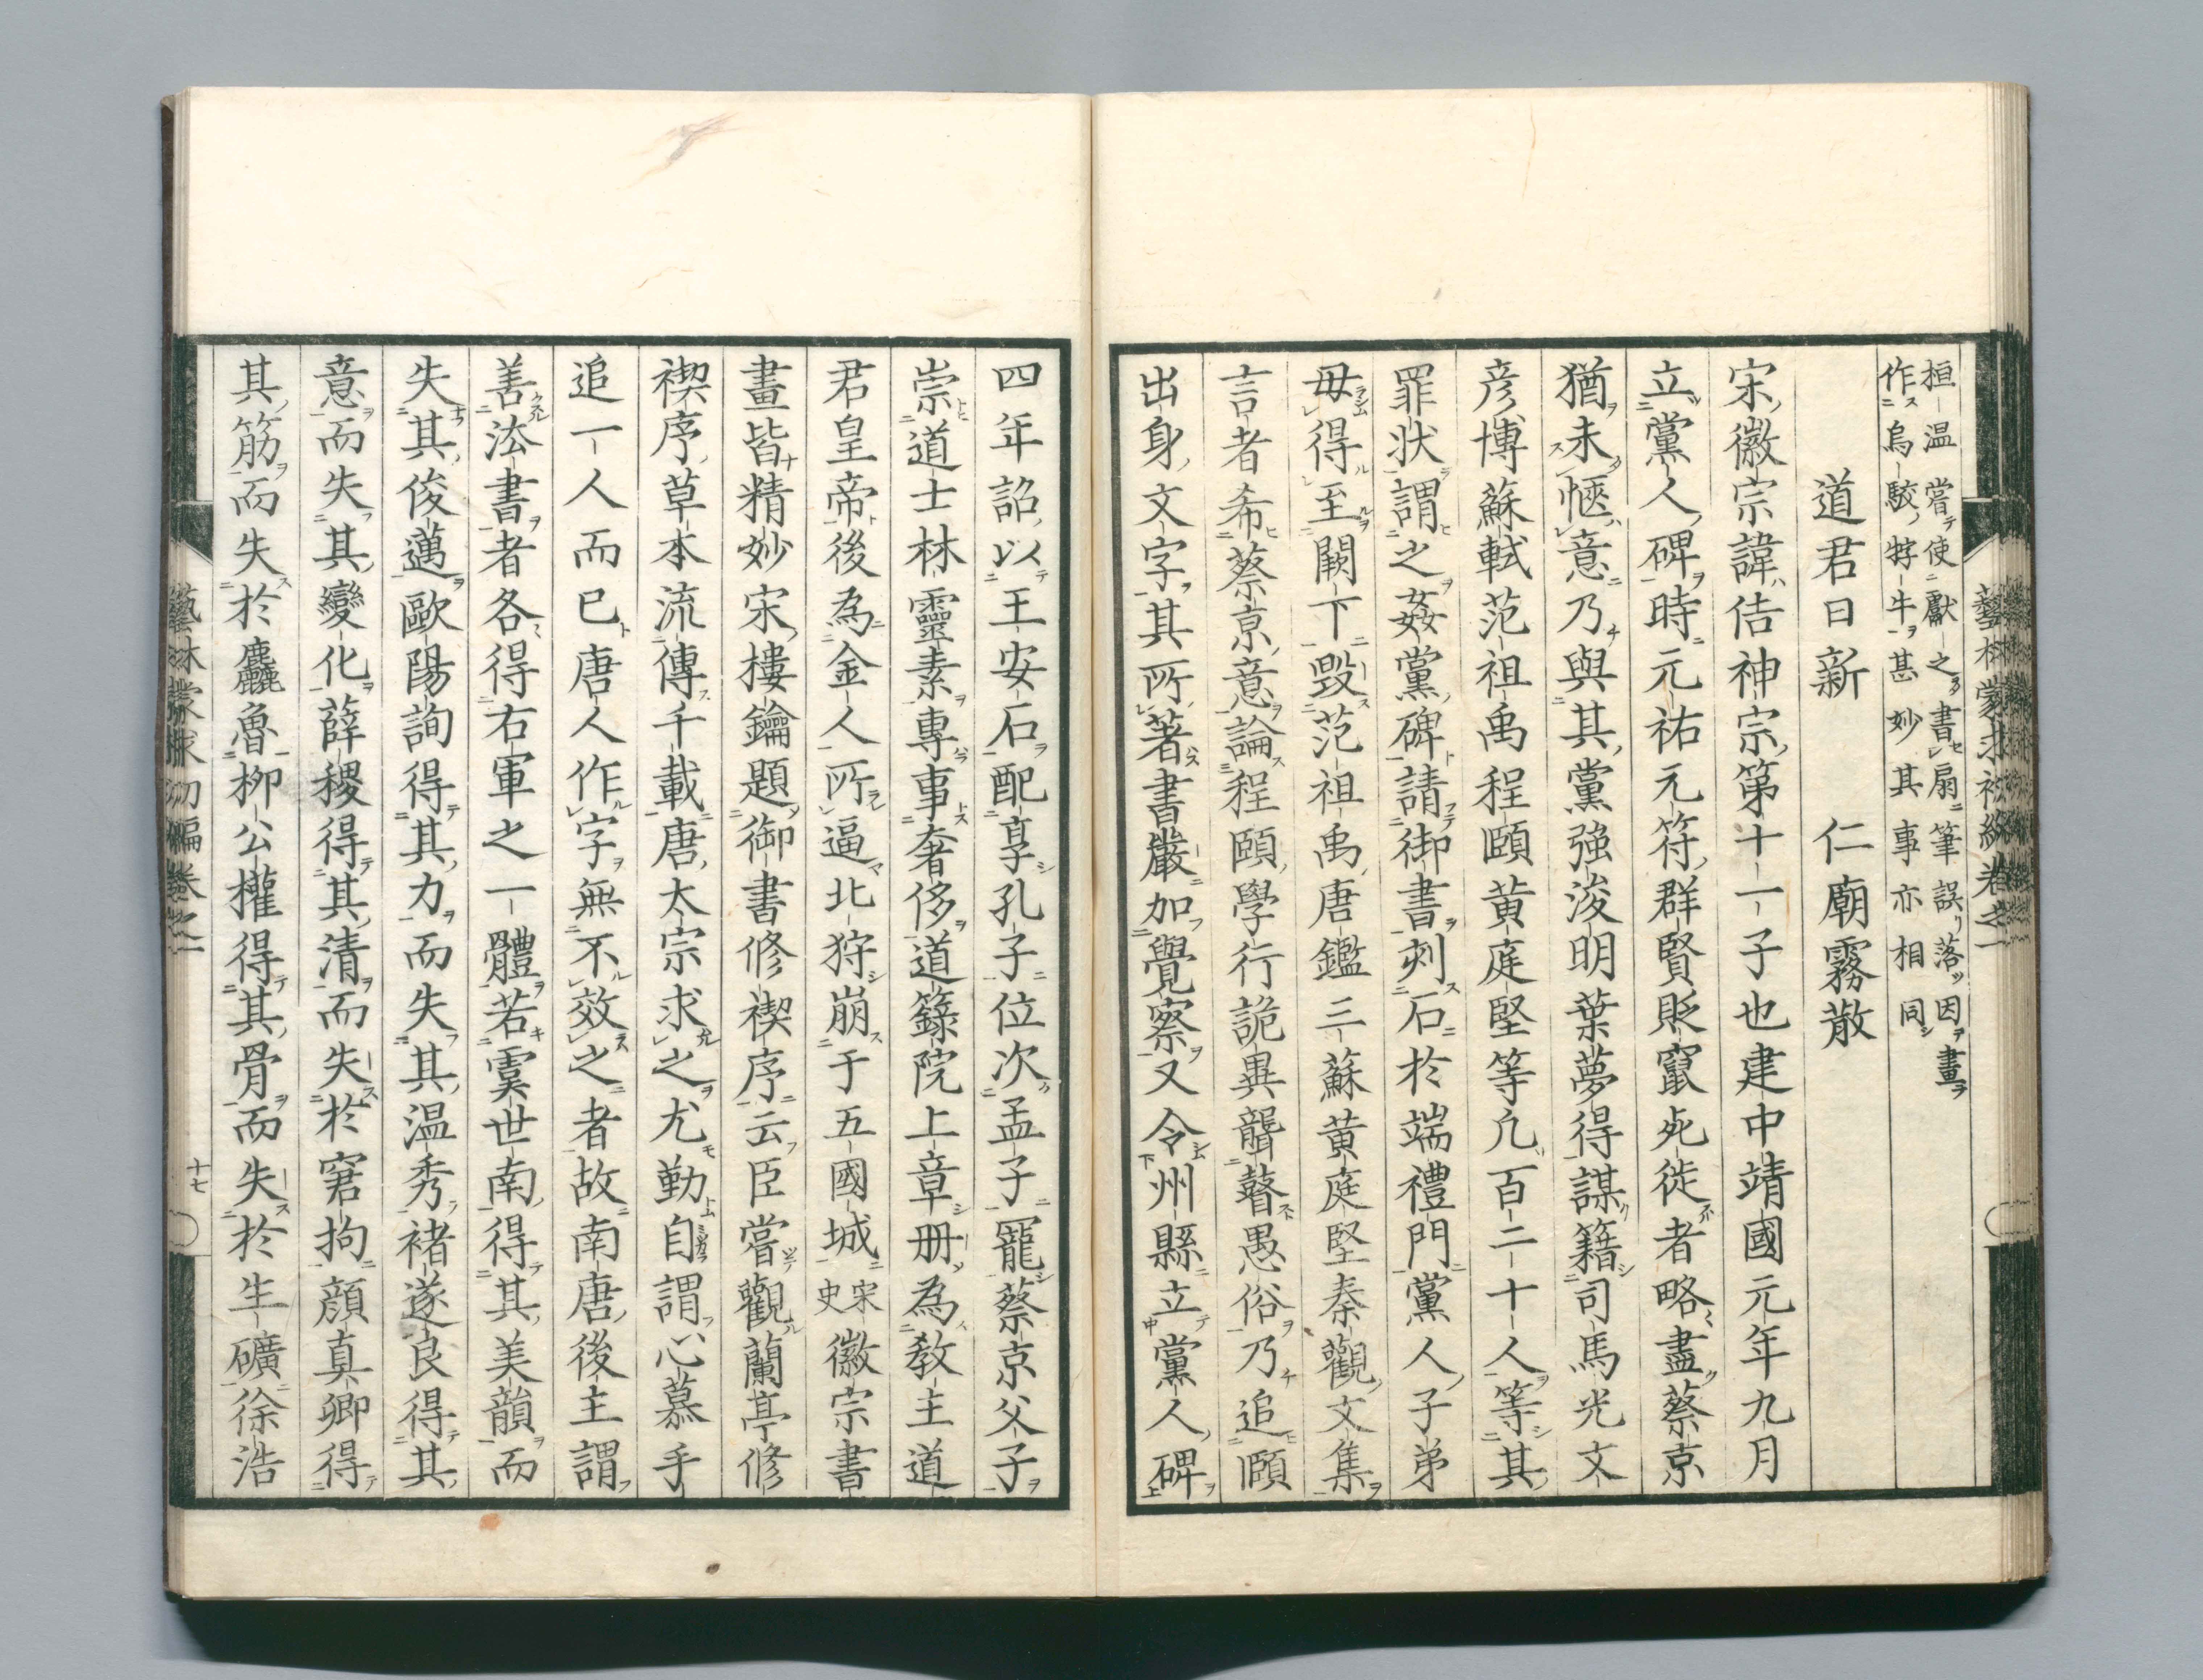 桓温嘗使獻之書扇筆誤落因畫
作烏駮牸牛甚妙其事亦相同
道君日新　仁廟霧散
宋徽宗諱佶神宗第十一子也建中靖國元年九月
立黨人碑時元祐元符群賢貶竄死徙者略盡蔡京
猶未愜意乃與其黨強浚明葉夢得謀籍司馬光文
彦博蘇軾范祖禹程頤黄庭堅等凢百二十人等其
罪状謂之姦黨碑請御書刻石於端禮門黨人子弟
毋得至闕下毀范祖禹唐鑑三蘇黄庭堅秦觀文集
言者希蔡京意論程頤學行詭異聾瞽愚俗乃追頤
出身文字其所著書嚴加覺察又令州縣立黨人碑
四年詔以王安石配享孔子位次孟子寵蔡京父子
崇道士林靈素專事奢侈道籙院上章册為教主道
君皇帝後為金人所逼北狩崩于五國城宋史徽宗書
畫皆精妙宋樓鑰題御書修禊序云臣嘗觀蘭亭修
禊序草本流傳千載唐太宗求之尤勤自謂心慕手
追一人而已唐人作字無不效之者故南唐後主謂
善法書者各得右軍之一體若虞世南得其美韻而
失其俊邁歐陽詢得其力而失其温秀褚遂良得其
意而失其變化薛稷得其清而失於窘拘顔真卿得
其筋而失於麤魯柳公權得其骨而失於生礦徐浩
十七